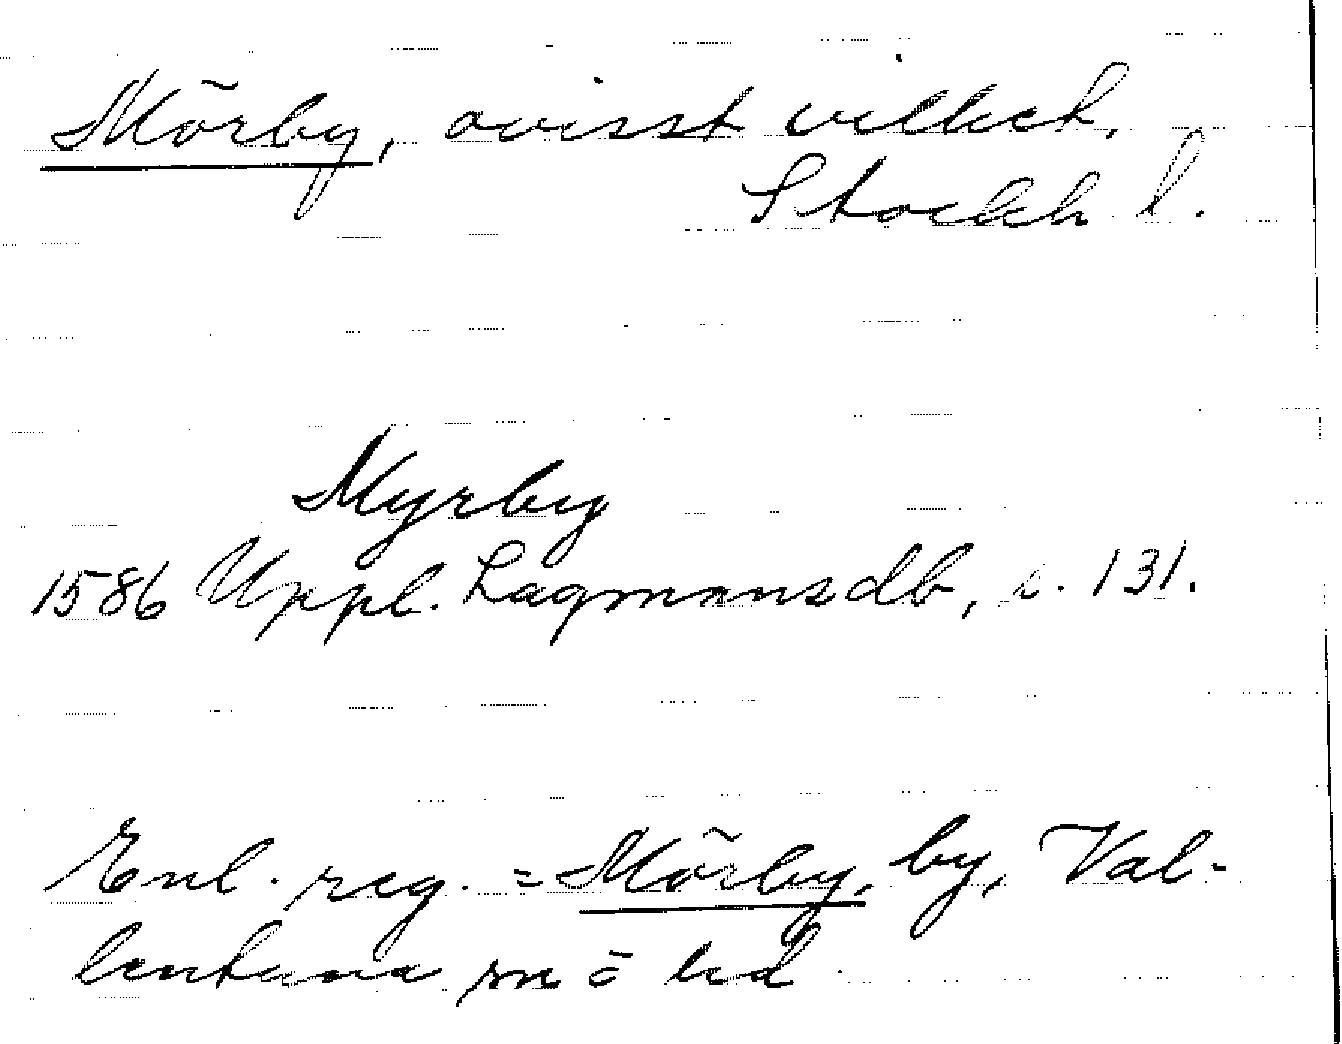 Mörby, ovisst vilket,
Stockh l.
Myrby
1586 Uppl. Lagmansdb, s. 131.
Enl. reg. = Mörby, by, Val-
lentuna sn o hd